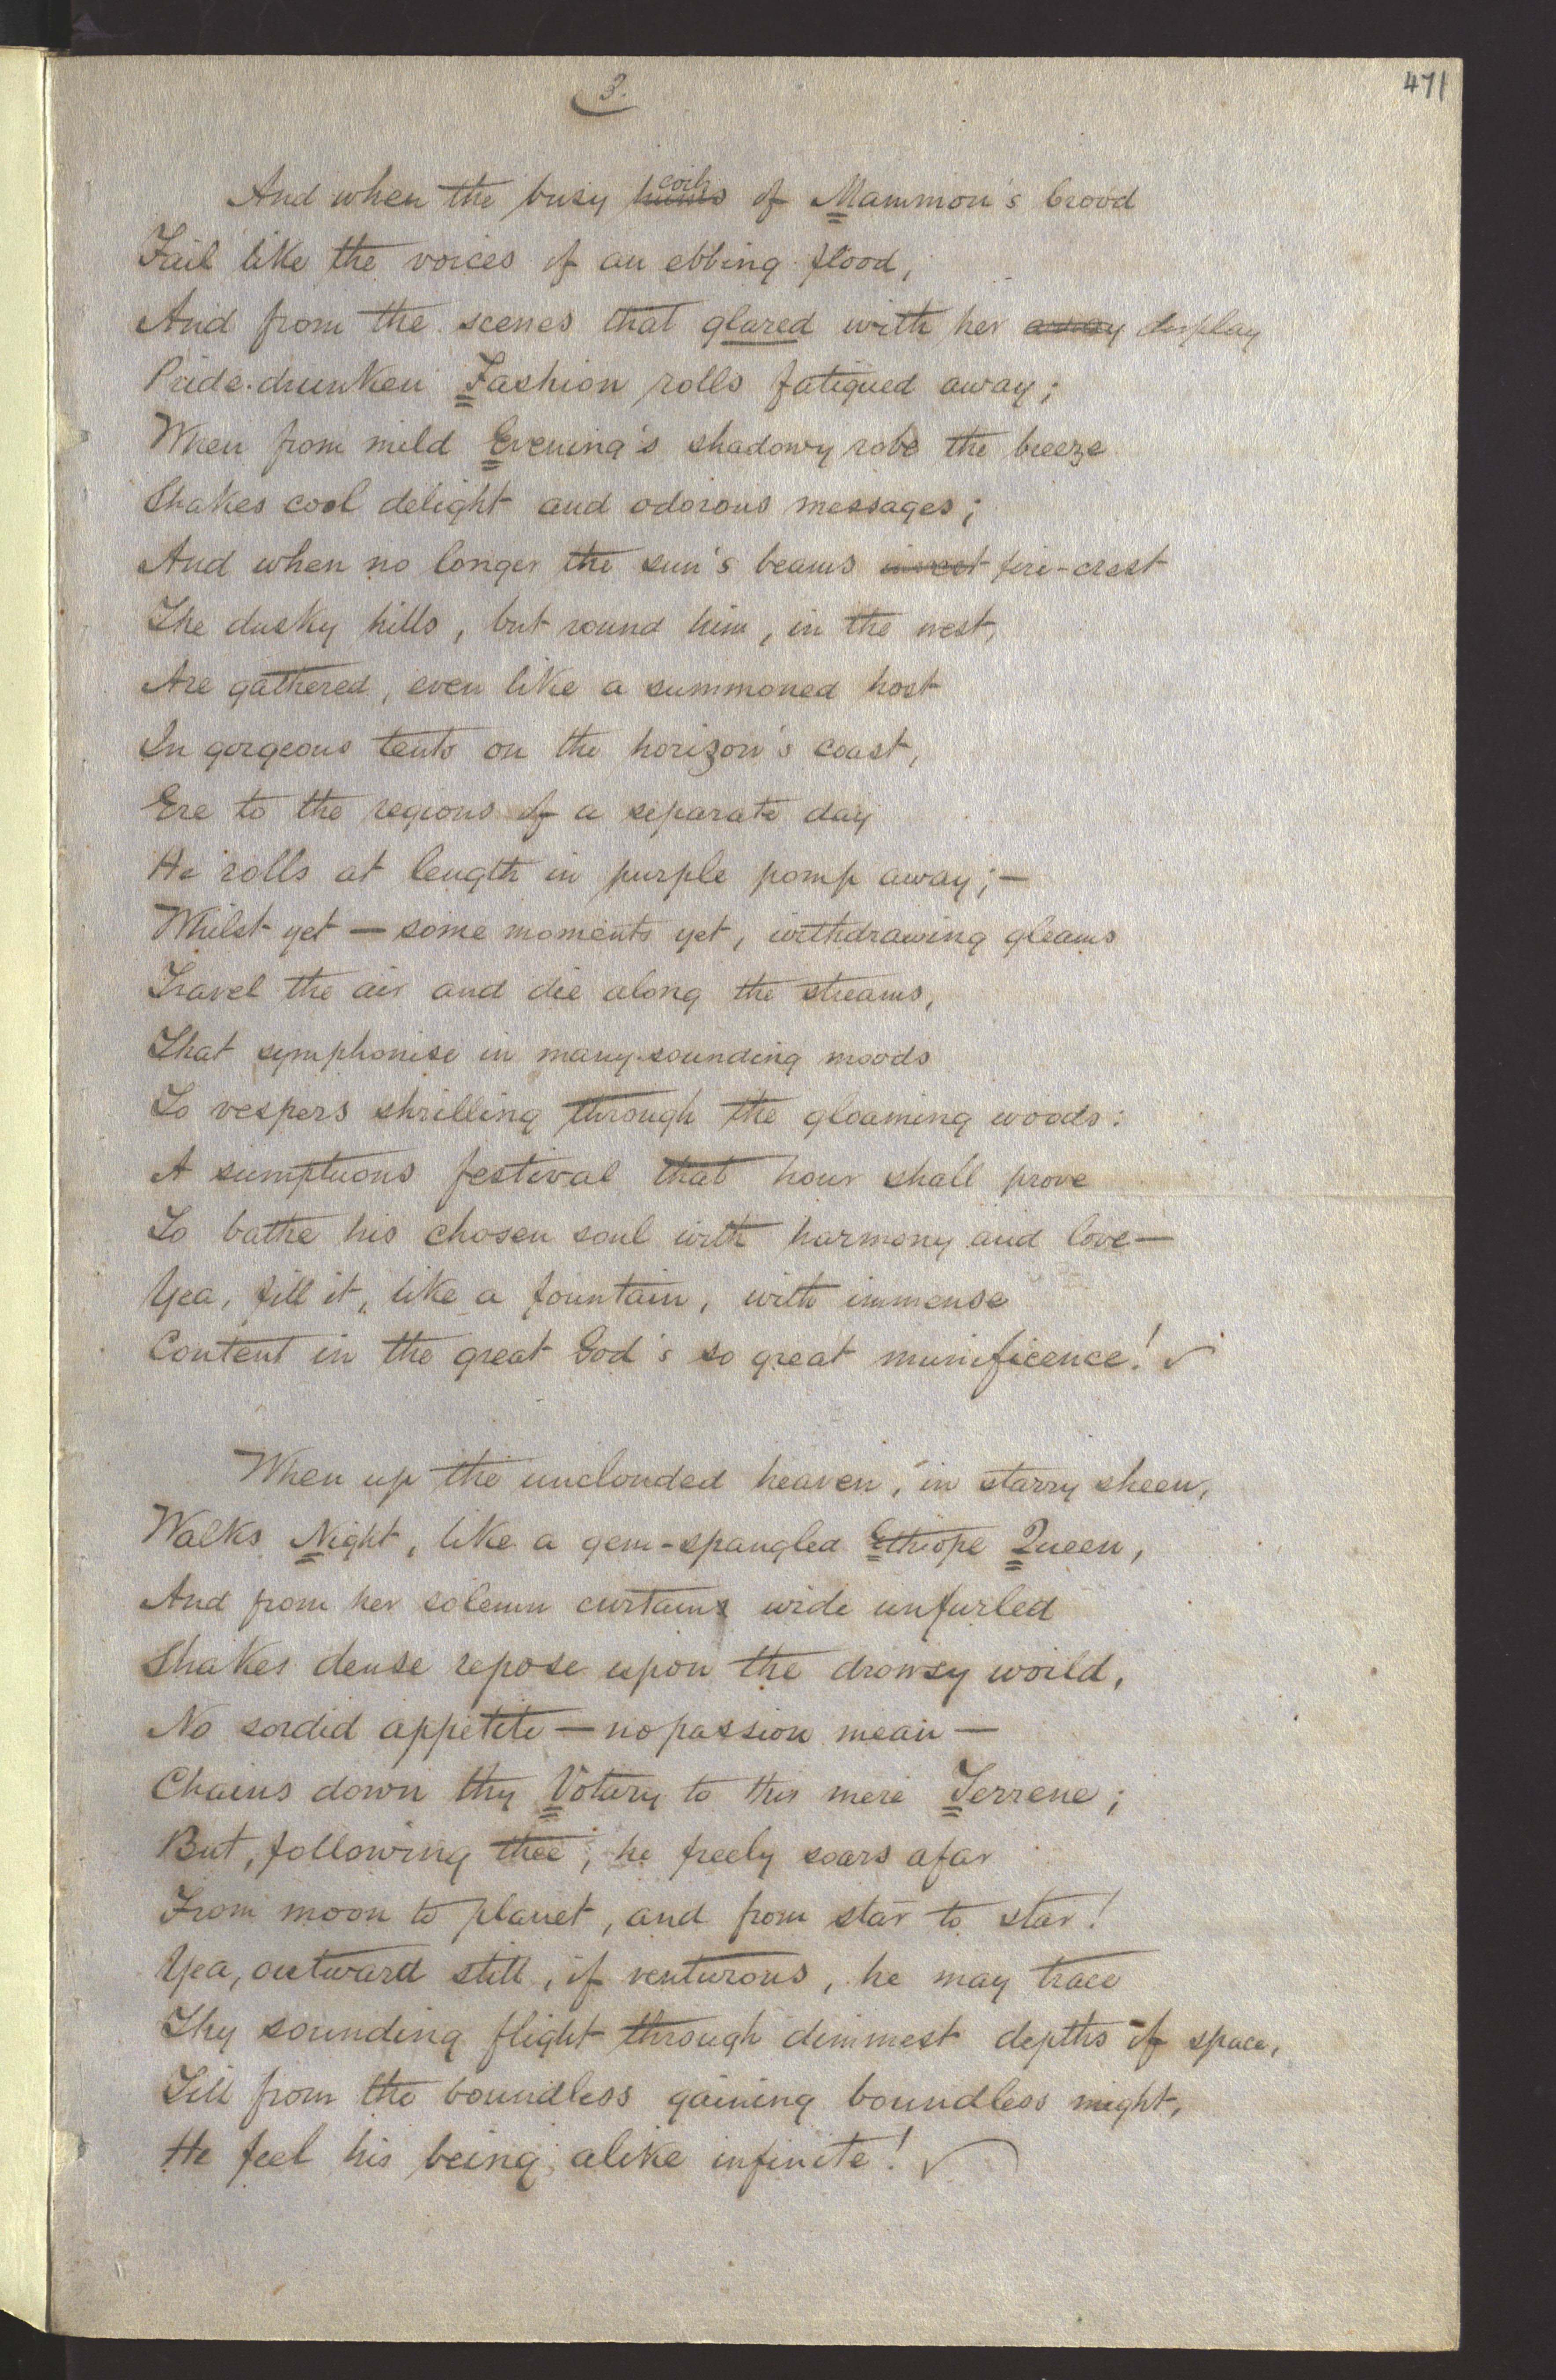 3.
471
And when the busy hums coils of Mammon's brood
Fail like the voices of an ebbing flood,
And from the scenes that glared with her array display
Pride-drunken Fashion rolls fatigued away;
When from mild Evening's shadowy robe the breeze
Shakes cool delight and odorous messages;
And when no longer the sun's beams invest fire-crest
The dusky hills, but round him, in the west,
Are gathered, even like a summoned host
In gorgeous tents on the horizon's coast,
Ere to the regions of a separate day
He rolls at length in purple pomp away;—
Whilst yet — some moments yet, withdrawing gleams
Travel the air and die along the streams,
That symphonise in many-sounding moods
To vespers shrilling through the gloaming woods:
A sumptuous festival that hour shall prove
To bathe his chosen soul with harmony and love—
Yea, fill it, like a fountain, with immense
Content in the great God's so great munificence! ✓
When up the unclouded heaven, in starry sheen,
Walks Night, like a gem-spangled Ethiope Queen,
And from her solemn curtains wide unfurled
Shakes dense repose upon the drowsy world,
No sordid appetite — no passion mean —
Chains down thy Votary to this mere Terrene;
But, following thee, he freely soars afar
From moon to planet, and from star to star!
Yea, outward still, if venturous, he may trace
Thy sounding flight through dimmest depths of space,
Till from the boundless gaining boundless might,
He feel his being alike infinite! ✓